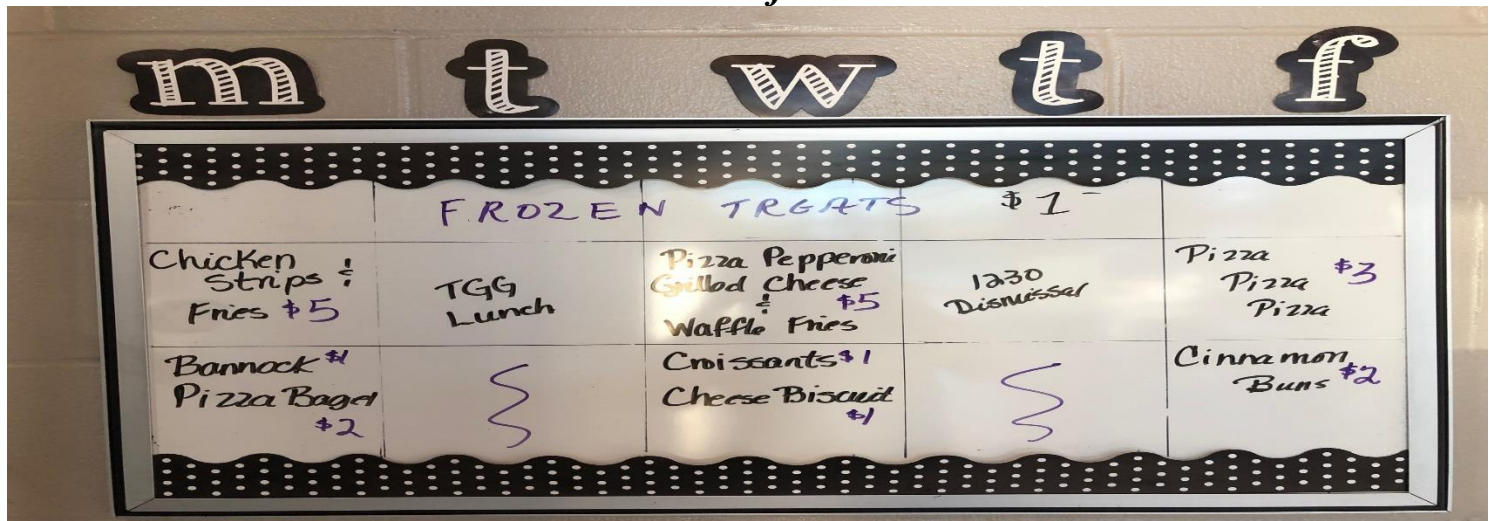 m t w t f
FROZEN TREATS $1
Chicken
Strips &
Fries $5
TGG
Lunch
Pizza Pepperoni
Grilled Cheese
& $5
Waffle Fries
1230
Dismissal
Pizza
Pizza $3
Pizza
Bannock $1
Pizza Bagel
$2
Croissants $1
Cheese Biscuit
$1
Cinnamon
Buns $2